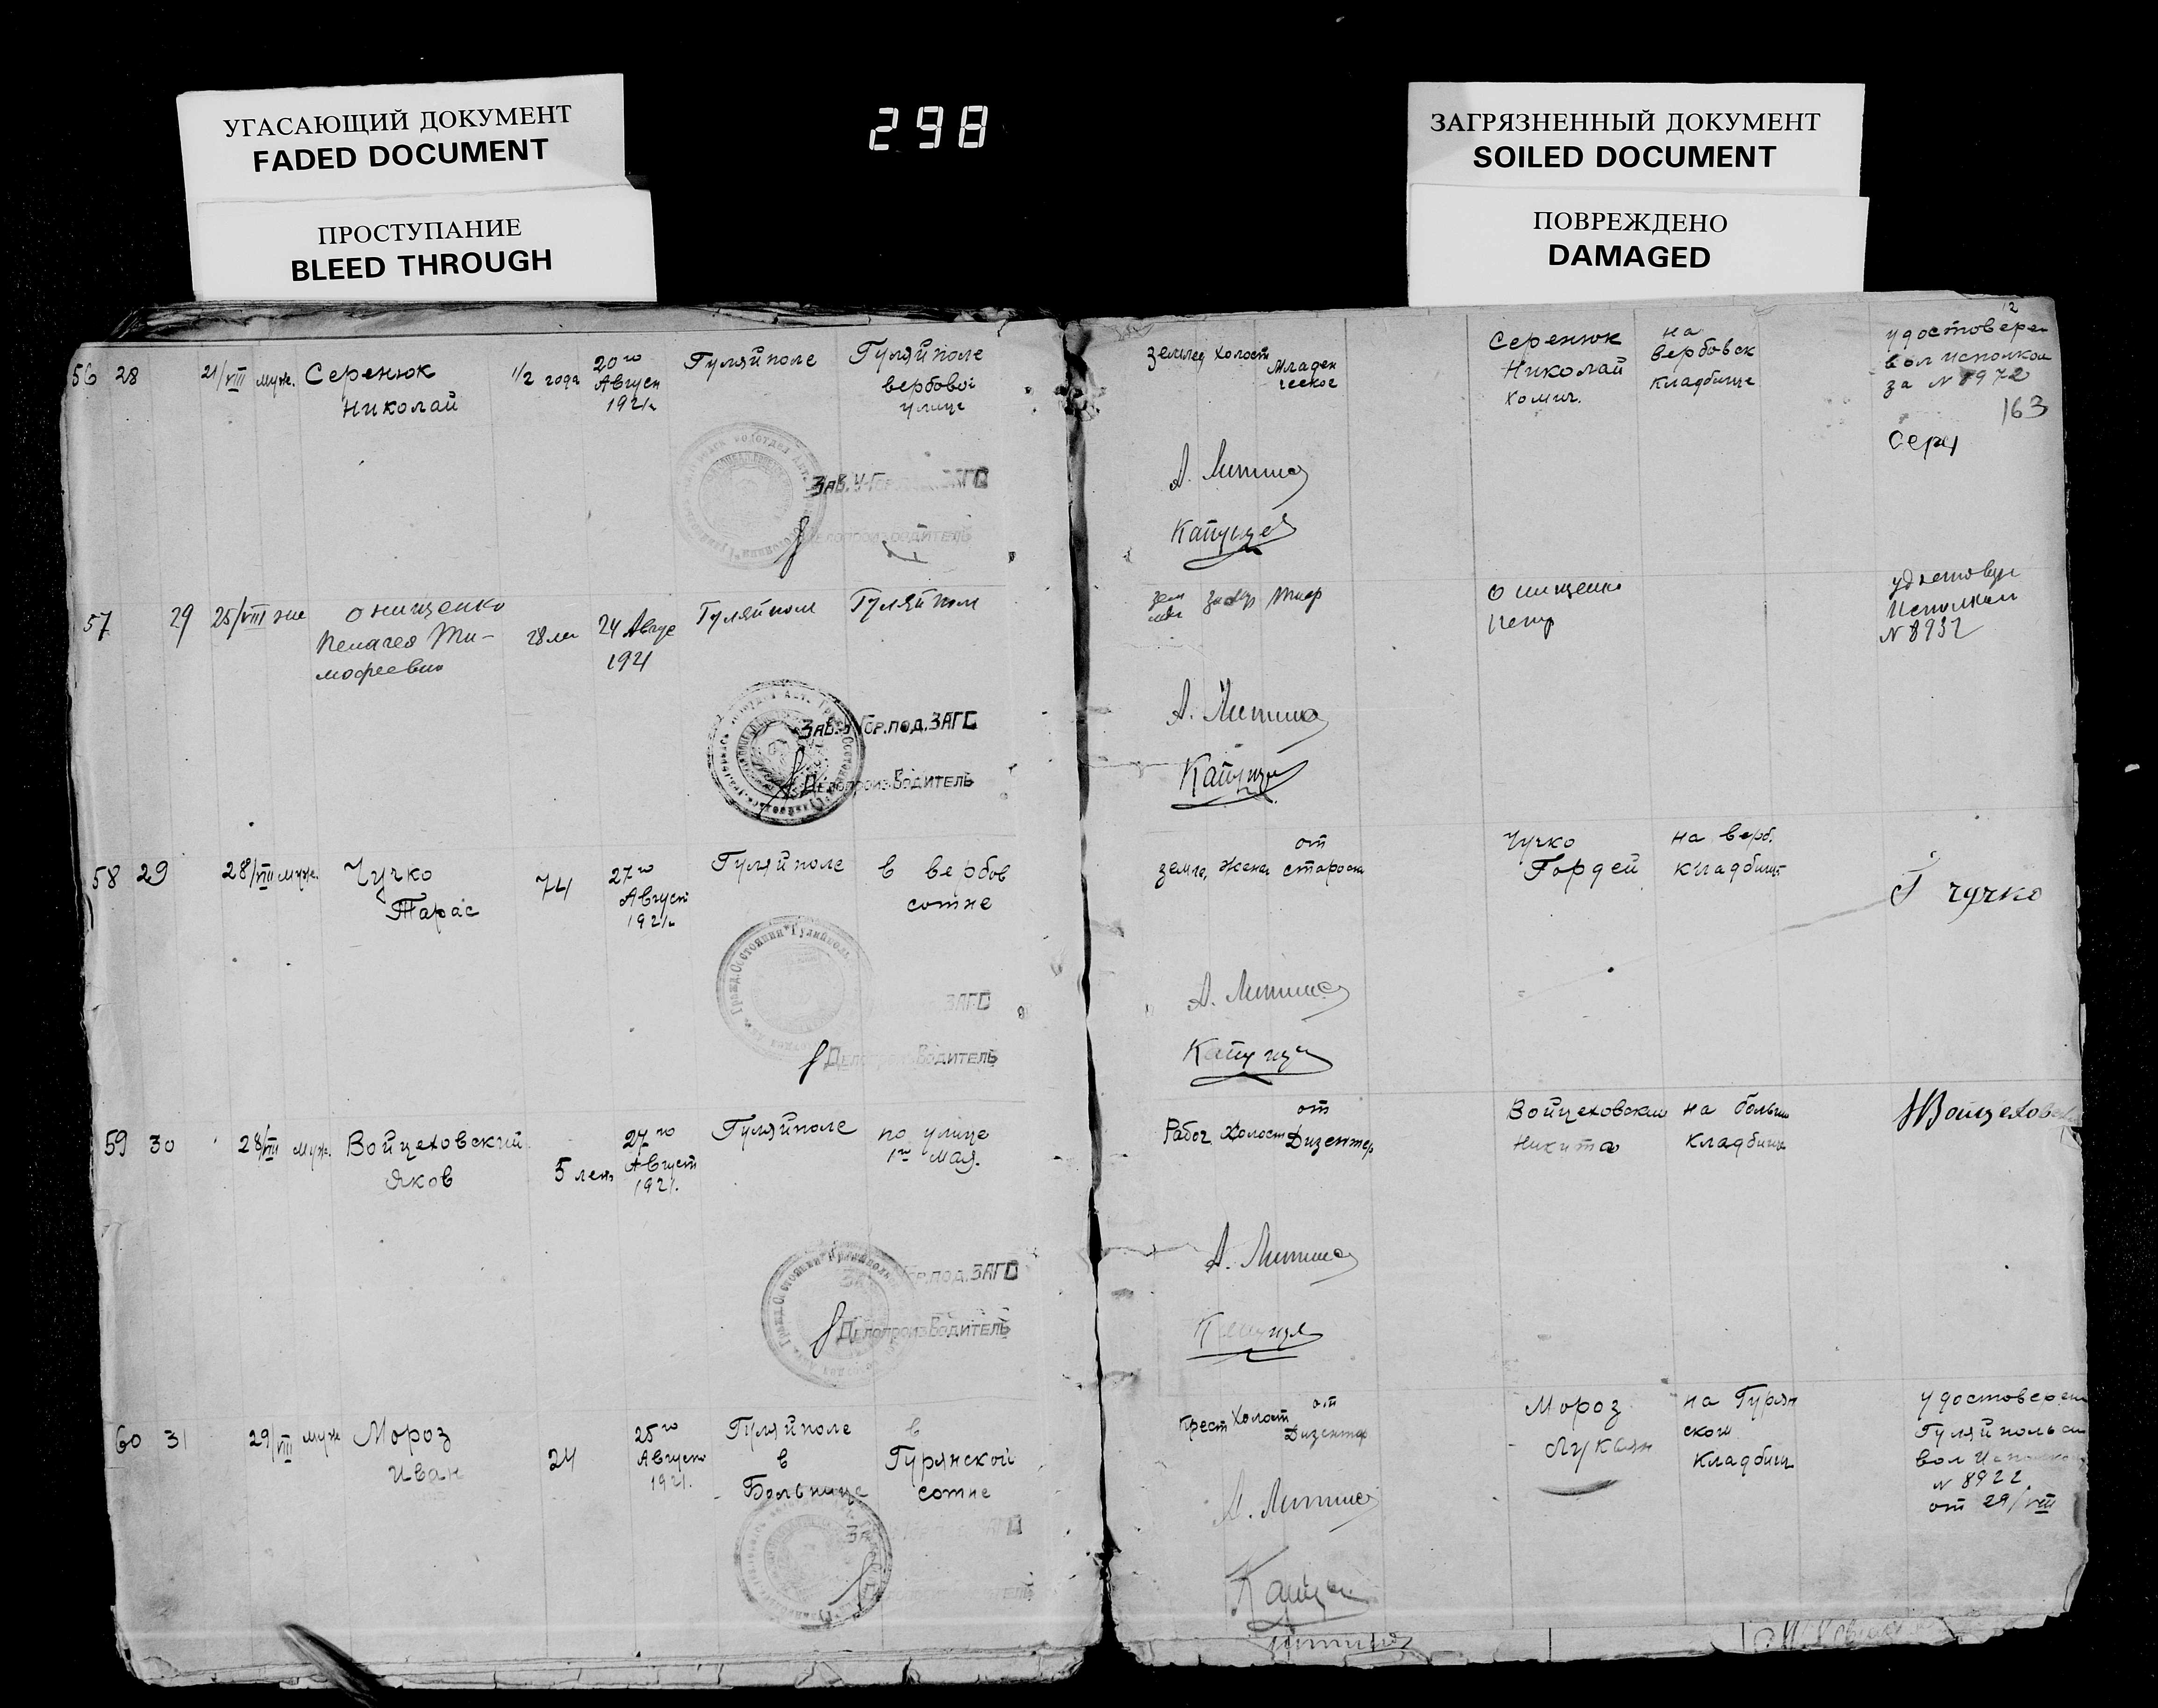 УГАСАЮЩИЙ ДОКУМЕНТ
FADED DOCUMENT
ПРОСТУПАНИЕ
BLEED THROUGH
298
ЗАГРЯЗНЕННЫЙ ДОКУМЕНТ
SOILED DOCUMENT
ПОВРЕЖДЕНО
DAMAGED
12
56 28 21/VIII муж. Серенюк Николай 1/2 года 20го Август 1921г Гуляйполе Гуляйполе вербовой улице
землед холост Младен ческое Серенюк Николай Хомич. на Вербовск кладбище удостоверен вол исполком за N 8972
163
Серң
ЗАГС
Делопроизводитель
А. Литвин
57 29 25/VIII жен Онищенко Пелагея Ти-
мофеевна 28 лет 24 Авгус 1921 Гуляйпол Гуляйпол
замуж Тиф Онищенко Петр удостовер Исполком N 8932
Зав. У-Гор.под.ЗАГС
Делопроизводитель
58 29 28/VIII муж. Чучко Тарас 74 27го Август 1921г Гуляйполе в вербов сотне
земле, Жена от старости Чучко Гордей на верб. кладбищ Г Чучко
ЗАГС
Делопроизводитель
59 30 28/VIII муж. Войцеховский Яков 5 лет 27го Август 1921. Гуляйполе по улице 1го Мая.
Рабоч Холост от Дизентер Войцеховский Никита на больш кладбищ НВойцеховск
Гор.под.ЗАГС
Делопроизводитель
60 31 29/VIII муж Мороз Иван 24 25го Август 1921. Гуляйполе в Больнице в Гурянской сотне
Крест Холост от Дизентер Мороз Лукьян на Гурян ском кладбищ удостоверен Гуляйпольск вол Исполком N 8922 от 29/VIII